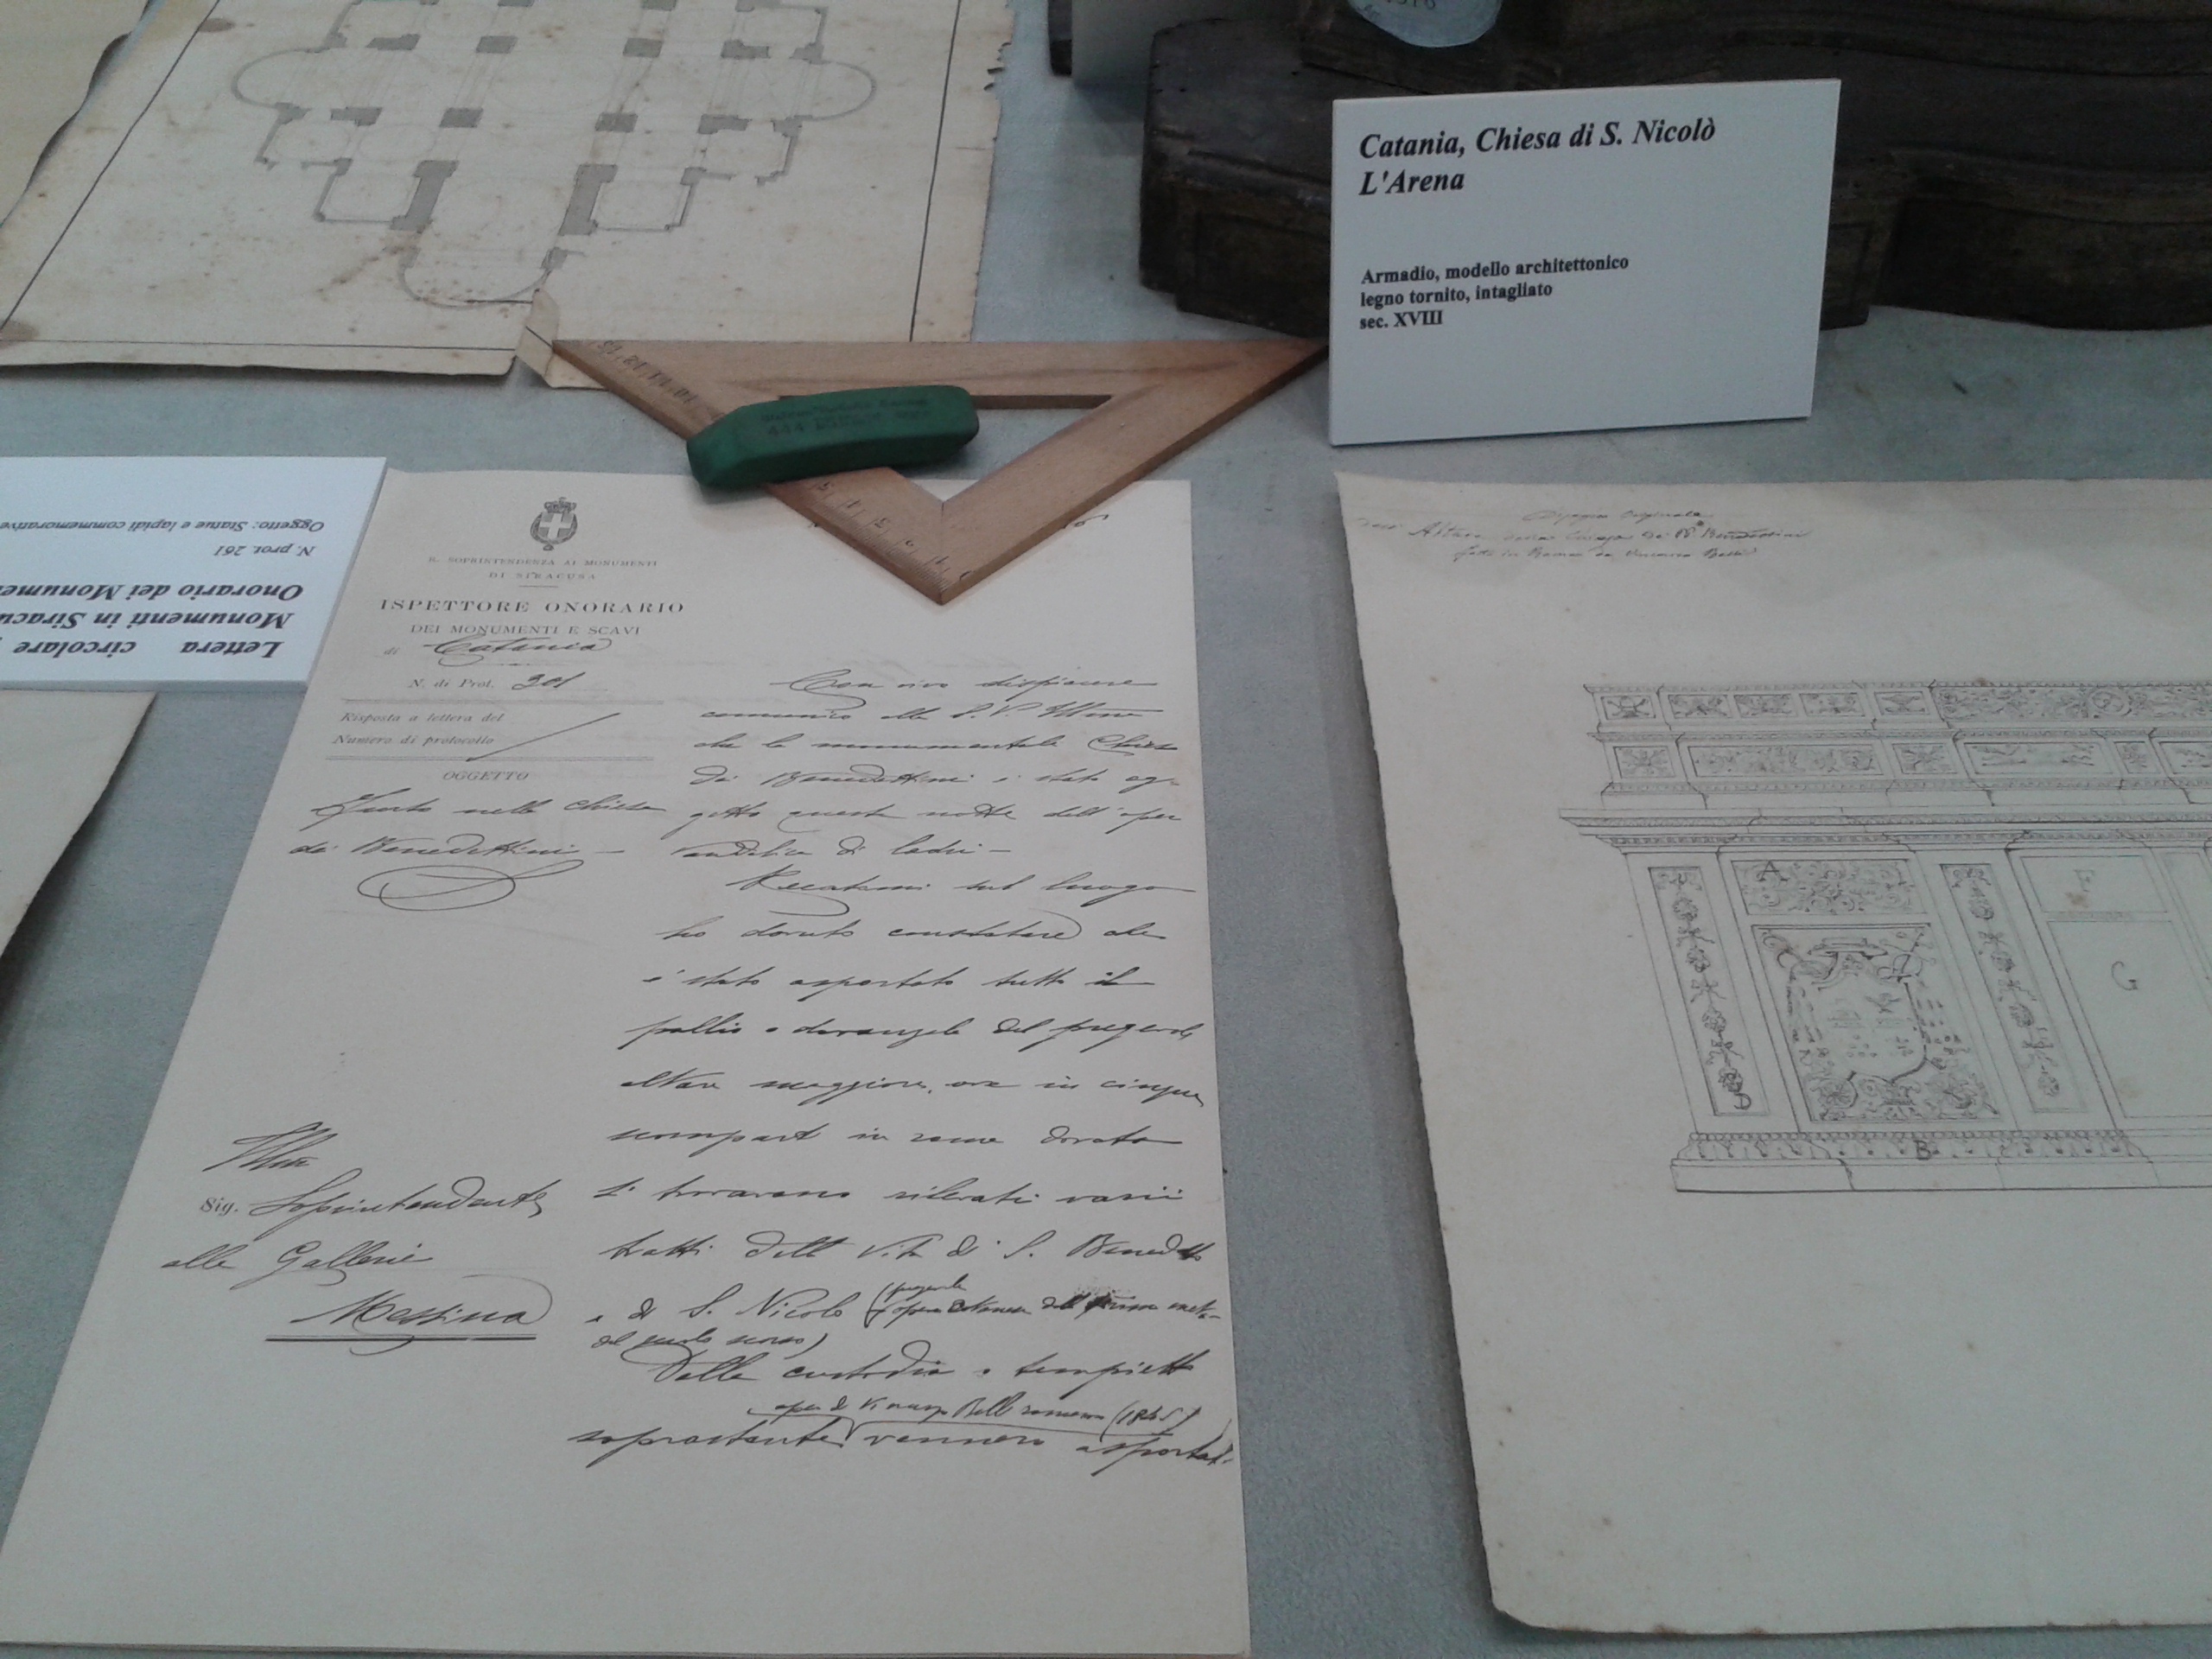 Catania, Chiesa di S. Nicolò
L'Arena
Armadio, modello architettonico
legno tornito, intagliato
sec. XVIII
Lettera circolare
Monumenti in Siracu
Onorario dei Monume
N. prot. 261
Oggetto: Statue e lapidi commemorative
R. SOPRINTENDENZA AI MONUMENTI
DI SIRACUSA
ISPETTORE ONORARIO
DEI MONUMENTI E SCAVI
di Catania
N. di Prot. 301
Risposta a lettera del
Numero di protocollo
OGGETTO
Furto nella chiesa
dei Benedettini
Illmo
Sig. Soprintendente
alle Gallerie
Messina
Con vivo dispiacere
comunico alla S. V. Illma
che la monumentale Chiesa
dei Benedettini è stata og-
getto questa notte dell'opera
vandalica di ladri -
Recatomi sul luogo
ho dovuto constatare che
è stato asportato tutto il
pallio o davangale del pregevole
altare maggiore, ove in cinque
scomparti in rame dorato
si trovavano rilevati varii
tratti della vita di S. Benedetto
e di S. Nicolo (pregevole opera catanese della prima metà
del secolo scorso)
Dalla custodia o tempietto
opera di Vincenzo Belli romano (1845)
soprastante vennero asportati
Disegno originale
Altare della Chiesa de PP. Benedettini
fatto in Roma da Vincenzo Belli
A
B
D
F
G